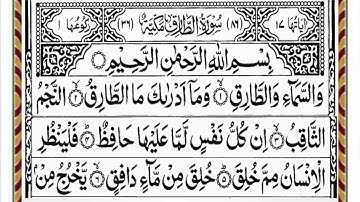 اٰيَاتُهَا ١٧ (٨٦) سُوْرَةُ الطَّارِقِ مَكِّيَّةٌ (٣٦) رُكُوْعُهَا ١
بِسْمِ اللّٰهِ الرَّحْمٰنِ الرَّحِيْمِ
وَالسَّمَآءِ وَالطَّارِقِ ۙ﴿١﴾ وَمَاۤ اَدْرٰىكَ مَا الطَّارِقُ ۙ﴿٢﴾ النَّجْمُ
الثَّاقِبُ ۙ﴿٣﴾ اِنْ كُلُّ نَفْسٍ لَّمَّا عَلَيْهَا حَافِظٌ ؕ﴿٤﴾ فَلْيَنْظُرِ
الْاِنْسَانُ مِمَّ خُلِقَ ؕ﴿٥﴾ خُلِقَ مِنْ مَّآءٍ دَافِقٍ ۙ﴿٦﴾ يَّخْرُجُ مِنْ